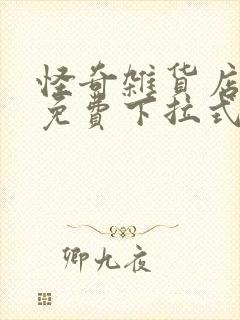 怪奇雑货店
免費下拉式
卿九夜